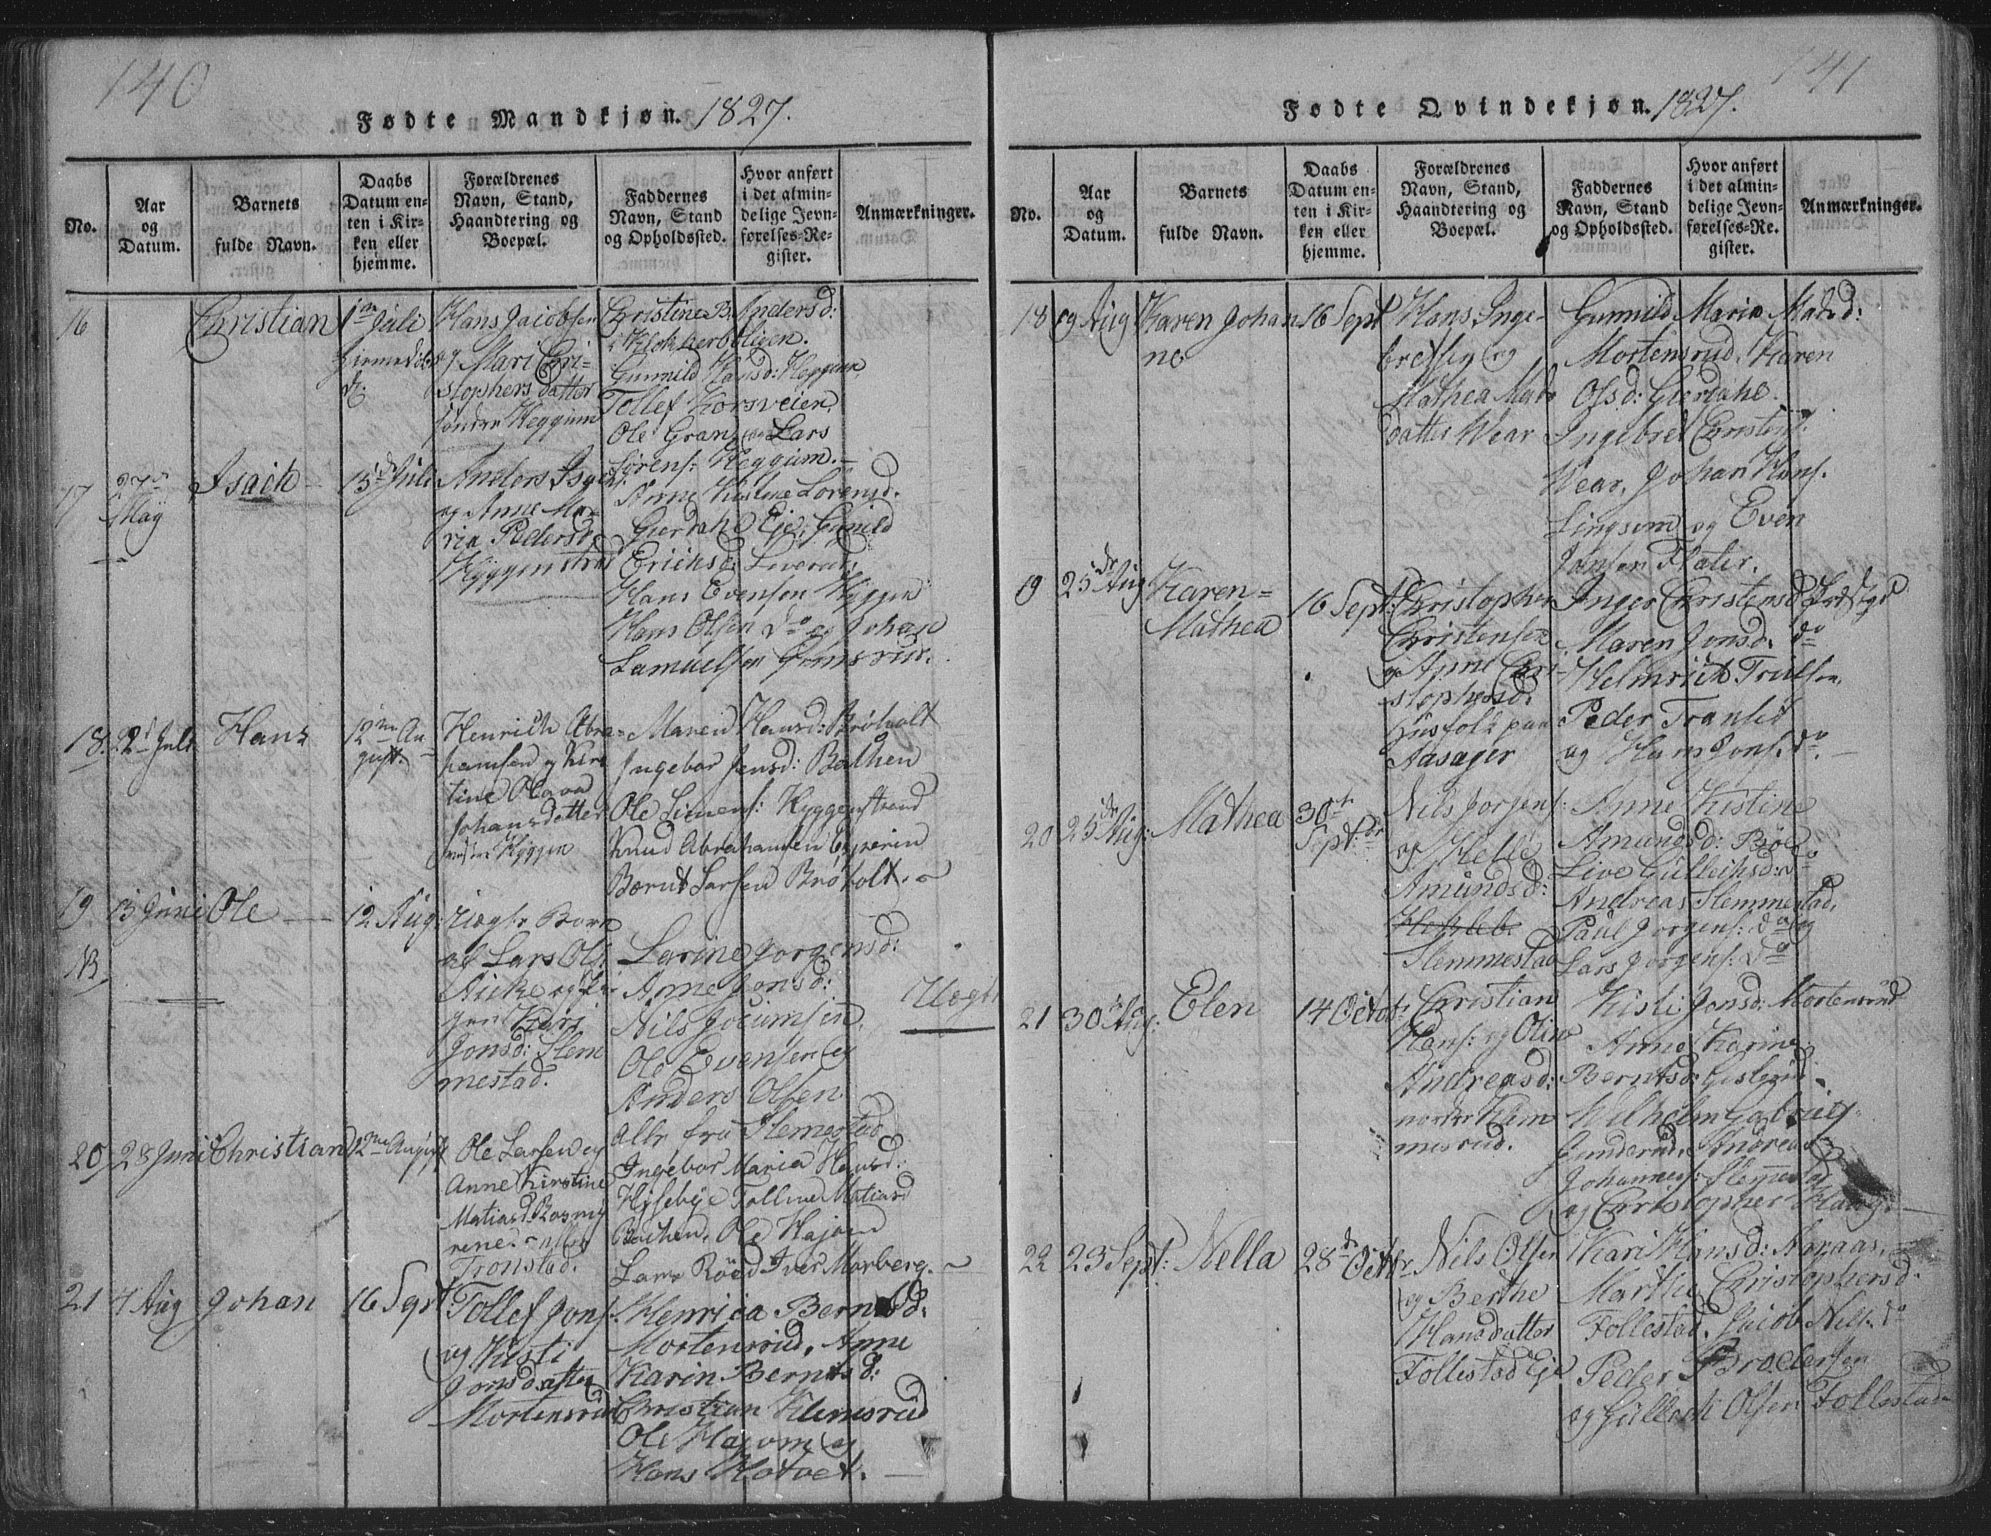 140
Fødte Mandkjøn. 1827.
No.
Aar
og
Datum.
Barnets
fulde Navn.
Daabs
Datum en-
ten i Kir-
ken eller
hjemme.
Forældrenes
Navn, Stand,
Haandtering og
Boepæl.
Faddernes
Navn, Stand
og Opholdssted.
Hvor anført
i det almin-
delige Jevn-
førelses-Re-
gister.
Anmærkninger.
16
Christian
1ste Juli
Hans Jacobsen
og Mari Cri-
stophers datter
søndre Heggum
Christine B. Andersd:
i Klokkerboligen.
Gunnild Hansd: Heggum
Tollef Korsveien
Ole Gran, og Lars
Sørens: Heggum.
17
27de
May
Isaih
15de Juli
Anders
og Anne Ma-
ria Pedersd.
Hyggenstrand
Anne Kistine Lorensd.
Gierdahl Eje, Gunild
Ericksd:
Hans Evensen Hyggen
Hans Olsen do og Johan
Samuelsen Grimsrud.
18
22d Juli
Hans
12te Au-
gust.
Henrich Abra-
hamsen og Kirs
tine Olava
Johansdatter
Hyggen
Maren Hansd: Brøholt
Ingebor Jensd: Bakken
Ole Simens: Hyggenstrand
Knud Abrahamsen
Bernt Larsen Brøholt.
19
NB
13 Juni
Ole
12 Aug:
Uægte Barn
af Lars Ols:
og Pi-
gen Kari
Jonsd: Slem
mestad.
Larine Jorgensd:
Anne Jonsd:
Nils Jocumsen,
Ole Evensen og
Anders Olsen
alle fra Slemestad
Uægte
20
28 Juni
Christian
12te August
Ole Larsen og
Anne Kirstine
Matiasd.
Tronstad.
Ingebor Maria Hansd:
Hysebye Tolline Matiasd
Bachen, Ole Hajom
Lars Røed Iver Morberg.
21
4 Aug
Johan
16 Sept
Tollef Jons.
og Kisti
Jonsdatter
Mortensrud
Henrica Berntsd:
Mortensrud, Anne
Karin Berntsd:
Christian Klemsrud
Ole Hajom og
Hans Hotvet.
141
Fødte Qvindekjøn. 1827.
No.
Aar
og
Datum.
Barnets
fulde Navn.
Daabs
Datum en-
ten i Kir-
ken eller
hjemme.
Forældrenes
Navn, Stand,
Haandtering og
Boepæl.
Faddernes
Navn, Stand
og Opholdssted.
Hvor anført
i det almin-
delige Jevn-
førelses-Re-
gister.
Anmærkninger.
18
19 Aug
Karen Johan
ne
16 Sept
Hans Inge-
bretsen og
Mathea Mads
datter Wear
Gunnild Maria Madsd:
Mortensrud, Karen
Olsd: Gierdahl.
Ingebret Christens.
Wear, Johan Hans.
Lingsom og Even
Jansen Slater.
19
25de Aug
Karen-
Mathea
16 Sept:
Christopher
Christensen
og Anne Cri-
stophersd.
Husfolk paa
Aasager
Inger Christensd
Maren Jonsd: do
Helmrick Trulsen,
Peder Tranlid
og Hans Jons. do
20
25de Aug:
Mathea
30te
Septbr
Nils Jorgens:
og Helle
Amundsd:
Slemmestad
Anne Kistine
Amundsd: Bøe
Live Gullichsd: do
Andreas Slemmestad,
Paul Jorgens: do og
Lars Jorgens: do
21
30te Aug:
Elen
14 Octob:
Christian
Hans: og Oline
Andreasd:
nordre Klem
mesrud.
Kisti Jonsd: Mortensrud
Anne Karine
Berntsd:
Wilhelm Gabriels
Gunderud, Andreas
Johannes: Slemmestad
og Christopher Haug.
22
23 Sept:
Nella
28de Octbr
Nils Olsen
og Berthe
Hansdatter
Follestad Eje
Kari Hansd: Aaraas,
Marthe Christophersd:
Follestad, Jacob Nils. do
Peder Brodersen
og Gulleck Olsen Follestad